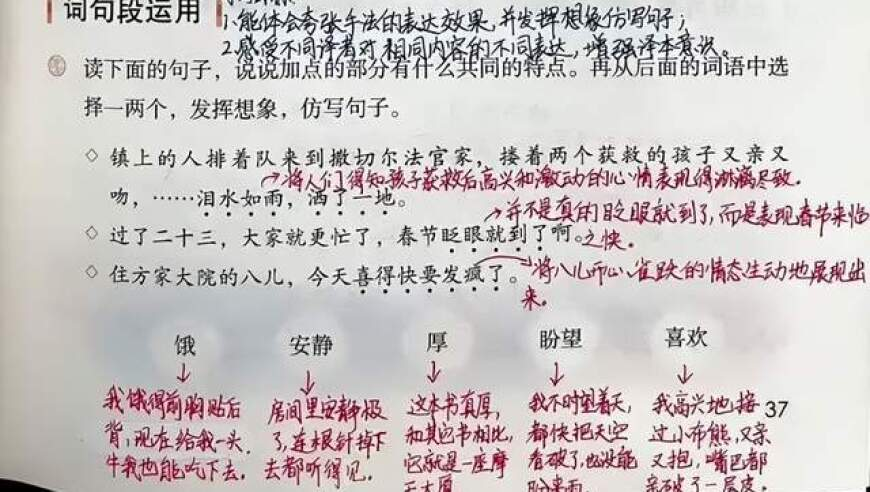 词句段运用
1、能体会夸张手法的表达效果,并发挥想象仿写句子;
2.感受不同译者对相同内容的不同表达,增强译本意识。
读下面的句子,说说加点的部分有什么共同的特点。再从后面的词语中选
择一两个,发挥想象,仿写句子。
◇ 镇上的人排着队来到撒切尔法官家,搂着两个获救的孩子又亲又
→将人们得知孩子获救后高兴和激动的心情表现得淋漓尽致.
吻,……泪水如雨,洒了一地。
→并不是真的眨眼就到了,而是表现春节来临
◇ 过了二十三,大家就更忙了,春节眨眼就到了啊。之快.
◇ 住方家大院的八儿,今天喜得快要发疯了。将八儿 心雀跃的情态生动地展现出
来.
饿 安静 厚 盼望 喜欢
我饿得前胸贴后
背,现在给我一头
牛我也能吃下去.
房间里安静极
了,连根针掉下
去都听得见.
这本书真厚,
和其它书相比,
它就是一座摩
天大厦
我不时望着天,
都快把天空
看破了,也没能
盼来雨
我高兴地接
过小布熊,又亲
又抱,嘴巴都
亲破了一层皮
37